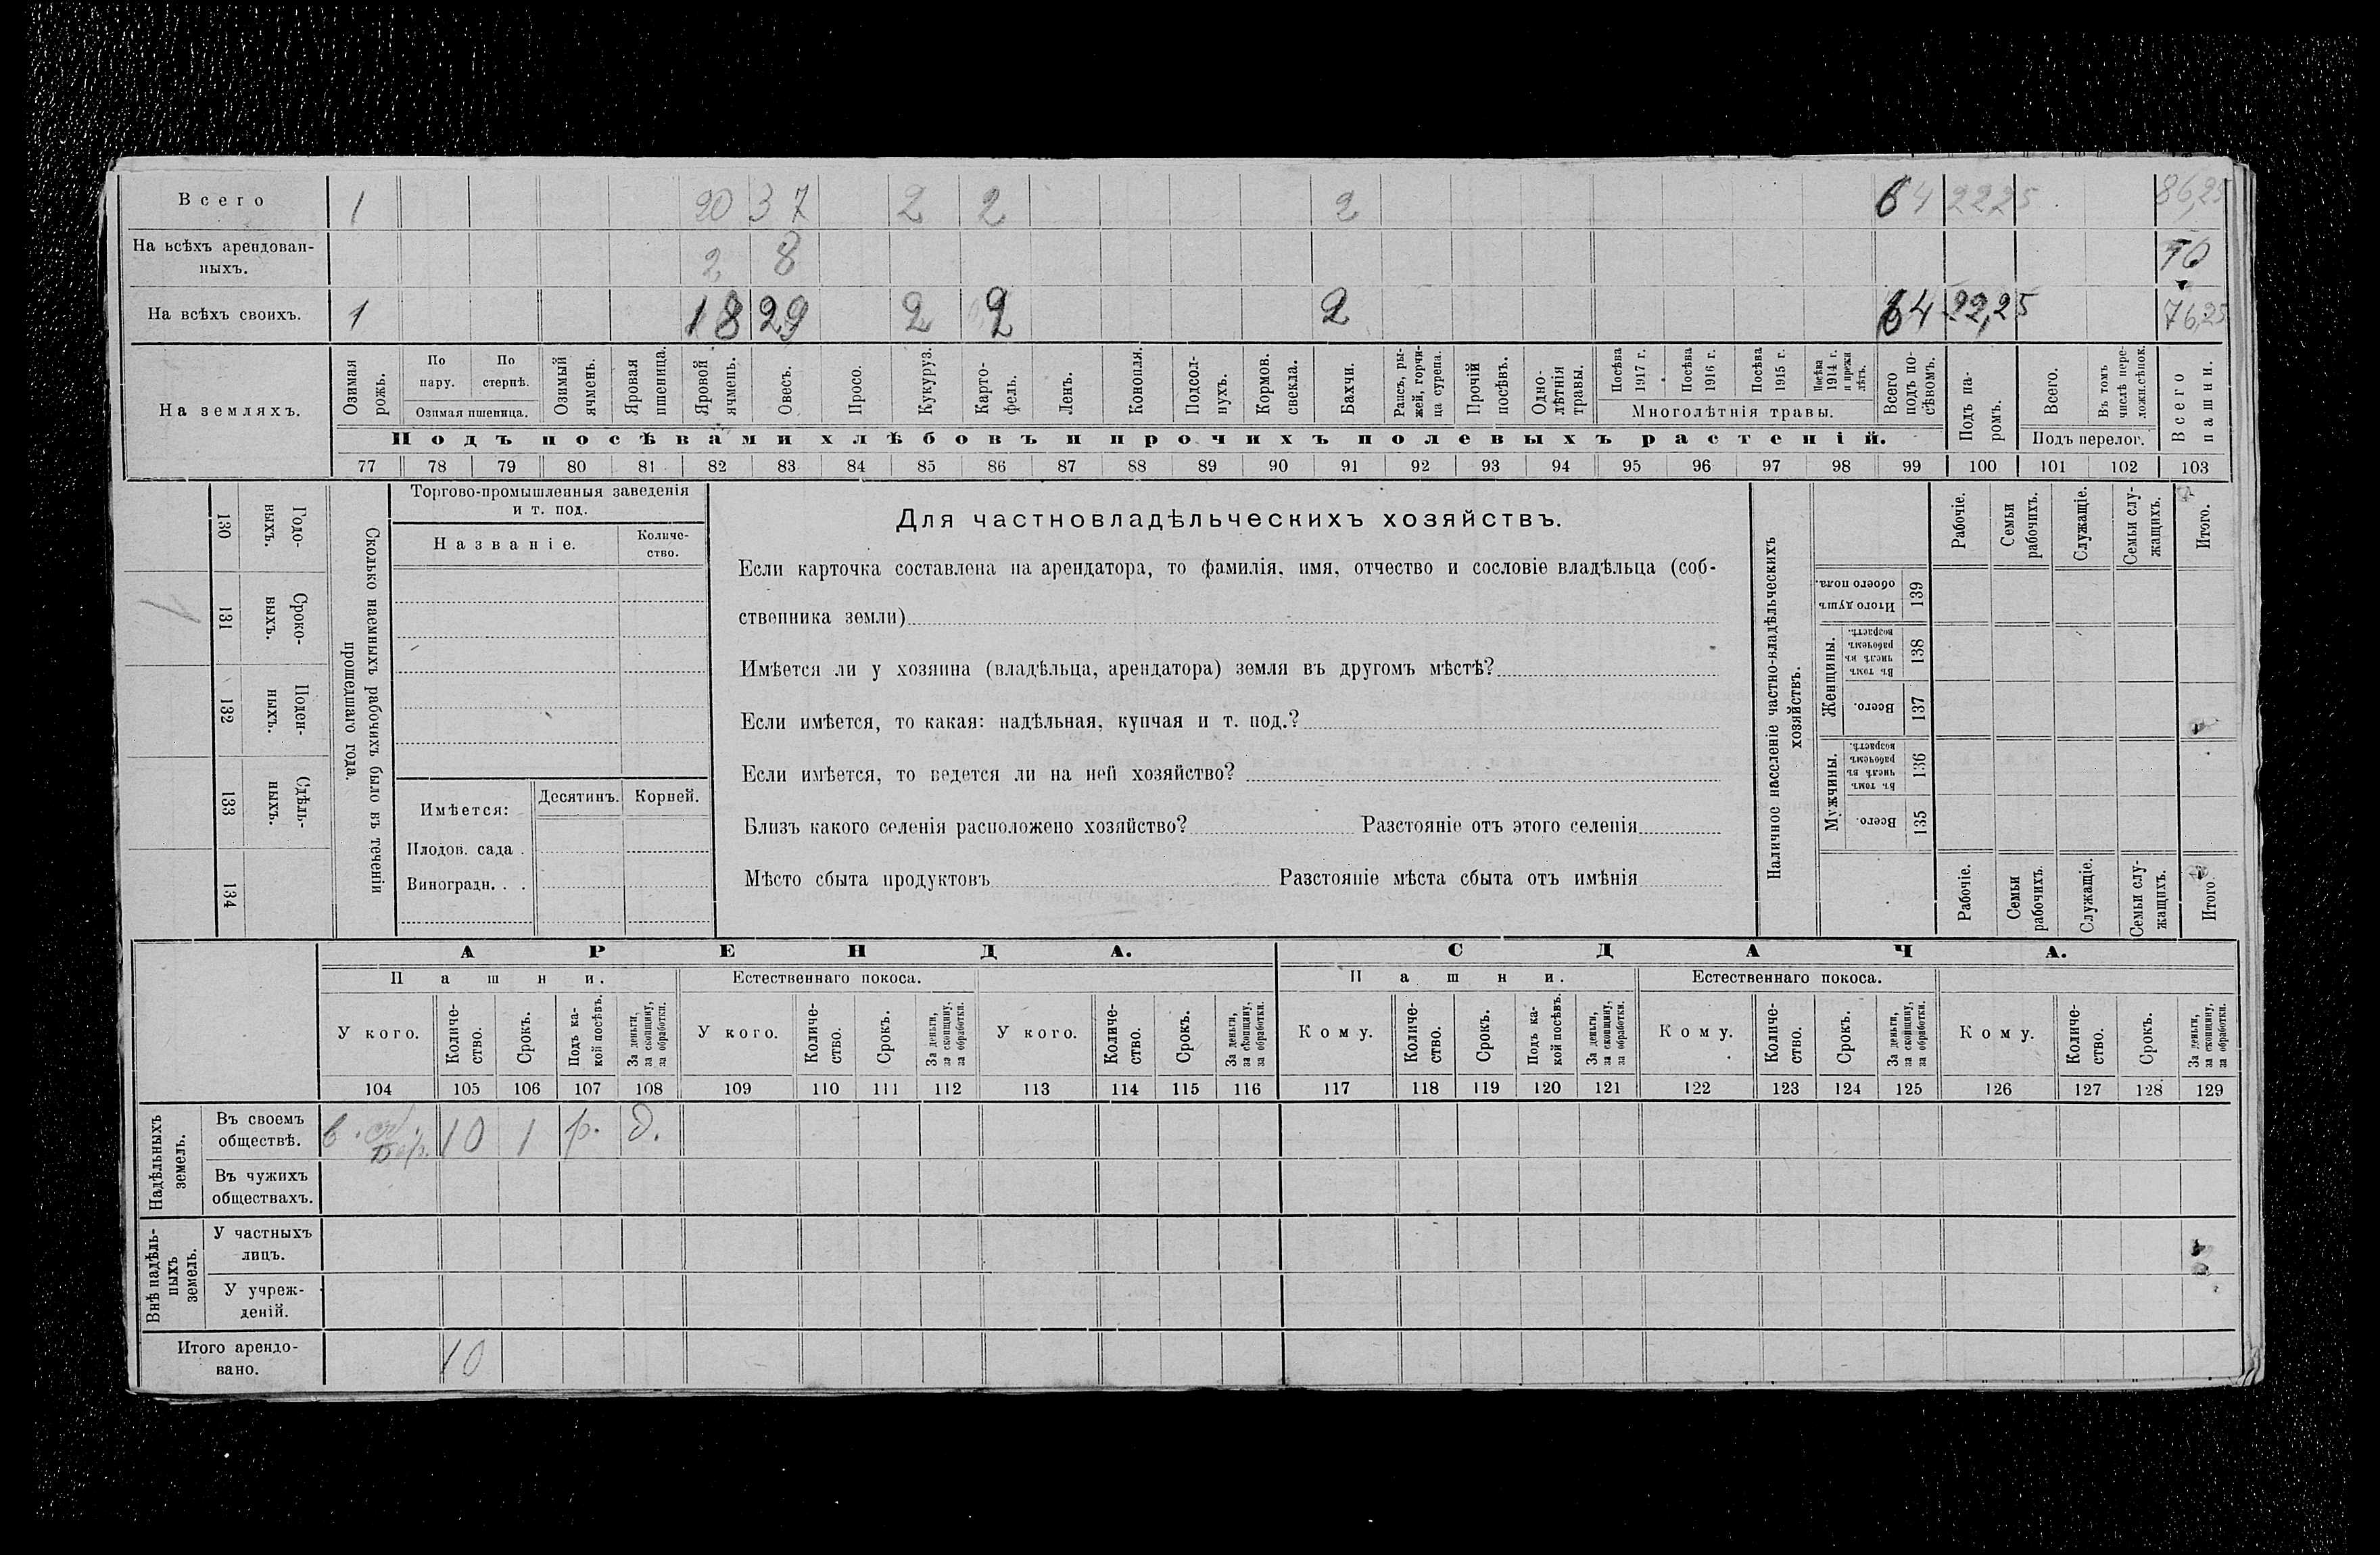 Всего 1 20 37 2 2 2 64 22 25 86,25
На всѣхъ арендован-
ныхъ. 2 8 10
На всѣхъ своихъ. 1 18 29 2 2 2 64 22,25 76,25
На земляхъ.
Озимая рожь.
По пару.
По стернѣ.
Озимая пшеница.
Озимый ячмень.
Яровая пшеница.
Яровой ячмень.
Овесъ.
Просо.
Кукуруз.
Карто-
фель.
Ленъ.
Конопля.
Подсол-
нухъ.
Кормов. свекла.
Бахчи.
Рапсъ, ры-
жей, горчи-
ца сурепа.
Прочій посѣвъ.
Одно-
лѣтнія травы.
Посѣва 1917 г.
Посѣва 1916 г.
Посѣва 1915 г.
Посѣва 1914 г. и прежн лѣтъ.
Многолѣтнія травы.
Всего подъ по-
сѣвомъ.
Подъ па-
ромъ.
Всего.
Въ томъ числѣ пере-
ложн.сѣнок.
Подъ перелог.
Всего пашни.
Подъ посѣвами хлѣбовъ и прочихъ полевыхъ растеній.
77 78 79 80 81 82 83 84 85 86 87 88 89 90 91 92 93 94 95 96 97 98 99 100 101 102 103
130 Годо-
выхъ.
131 Сроко-
выхъ.
132 Поден-
ныхъ.
133 Сдѣль-
ныхъ.
134
1
Сколько наемныхъ рабочихъ было въ теченіи
прошедшаго года.
Торгово-промышленныя заведенія
и т. под.
Названіе.
Количе-
ство.
Имѣется:
Десятинъ.
Корней.
Плодов. сада .
Виноградн. . .
Для частновладѣльческихъ хозяйствъ.
Если карточка составлена на арендатора, то фамилія, имя, отчество и сословіе владѣльца (соб-
ственника земли)
Имѣется ли у хозяина (владѣльца, арендатора) земля въ другомъ мѣстѣ?
Если имѣется, то какая: надѣльная, купчая и т. под.?
Если имѣется, то ведется ли на ней хозяйство?
Близъ какого селенія расположено хозяйство? Разстояніе отъ этого селенія
Мѣсто сбыта продуктовъ Разстояніе мѣста сбыта отъ имѣнія
Наличное населеніе частно-владѣльческихъ
хозяйствъ.
Рабочіе.
Семьи рабочихъ.
Служащіе.
Семьи слу-
жащихъ.
Итого.
Итого душъ обоего пола. 139
Женщины.
Въ томъ числѣ въ рабочемъ возрастѣ. 138
Всего. 137
Мужчины.
Въ томъ числѣ въ рабочемъ возрастѣ. 136
Всего. 135
Рабочіе.
Семьи рабочихъ.
Служащіе.
Семьи слу-
жащихъ.
Итого
АРЕНДА.
СДАЧА.
Пашни.
Естественнаго покоса.
Пашни.
Естественнаго покоса.
У кого.
Количе-
ство.
Срокъ.
Подъ ка-
кой посѣвъ.
За деньги, за скопщину, за обработки.
У кого.
Количе-
ство.
Срокъ.
За деньги, за скопщину, за обработки.
У кого.
Количе-
ство.
Срокъ.
За деньги, за скопщину, за обработки.
Кому.
Количе-
ство.
Срокъ.
Подъ ка-
кой посѣвъ.
За деньги, за скопщину, за обработки.
Кому.
Количе-
ство.
Срокъ.
За деньги, за скопщину, за обработки.
Кому.
Количе-
ство.
Срокъ.
За деньги, за скопщину, за обработки.
104 105 106 107 108 109 110 111 112 113 114 115 116 117 118 119 120 121 122 123 124 125 126 127 128 129
Надѣльныхъ земель.
Въ своемъ
обществѣ. 10 1 р. д.
Въ чужихъ
обществахъ.
Внѣ надѣль-
ныхъ земель.
У частныхъ
лицъ.
У учреж-
деній.
Итого арендо-
вано. 10